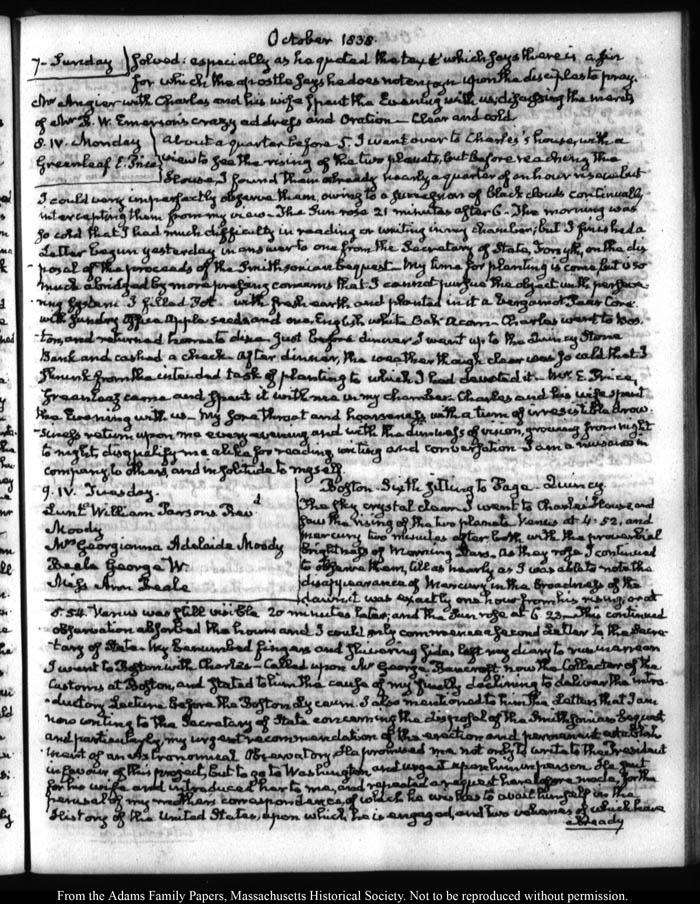 October 1838.
7. Sunday solved: especially as he quoted the text which says there is a sin
for which the apostle says he does not enjoin upon the disciples to pray.
Mr Angier with Charles and his wife spent the Evening with us, discussing the merits
of Mr R. W. Emerson's crazy address and Oration — Clear and cold.
8. IV. Monday About a quarter before 5. I went over to Charles's house, with a
Greenleaf E. Price view to see the rising of the two planets, but before reaching the
House, I found them already nearly a quarter of an hour risen, but
I could very imperfectly observe them, owing to a succession of black clouds continually
intercepting them from my view — The Sun rose 21 minutes after 6 — The morning was
so cold that I had much difficulty in reading or writing in my chamber; but I finished a
Letter begun yesterday in answer to one from the Secretary of State, Forsyth, on the dis
posal of the proceeds of the Smithsonian bequest — My time for planting is come, but is so
much abridged by more pressing concerns that I cannot pursue the object with persever
ing system I filled Pot with fresh earth and planted in it a Bergamot Pear Core.
with sundry Apple seeds and one English white Oak Acorn — Charles went to Bos-
ton, and returned home to dine. Just before dinner I went up to the Quincy Stone
Bank and cashed a check After dinner, the weather though clear was so cold that I
shrunk from the intended task of planting to which I had devoted it — Mr E. Price
Greenleaf came and spent it with me in my chamber. Charles and his wife spent
the Evening with us — My sore throat and hoarseness with a turn of irresistible drow
siness return upon me every evening and with the dimness of vision, growing from night
to night, disqualify me alike for reading, writing and conversation I am a nuisance in
company to others, and in solitude to myself.
9. IV. Tuesday. Boston. Sixth sitting to Page — Quincy.
Lunt William Parsons Revd
Moody
Mrs Georgianna Adelaide Moody
Beale George W.
Miss Ann Beale
The sky crystal clear I went to Charles's House and
saw the rising of the two planets Venus at 4. 52, and
mercury two minutes after both with the proverbial
brightness of Morning Stars. As they rose I continued
to observe them, till as nearly as I was able to note the
disappearance of Mercury in the broadness of the
dawn it was exactly one hour from his rising, or at
5. 54. Venus was still visible 20 minutes later; and the Sun rose at 6. 23 — This continued
observation absorbed the hours and I could only commence a second Letter to the Secre
tary of State. My benumbed fingers and shivering sides left my diary to run in arrear
I went to Boston with Charles — Called upon Mr George Bancroft now the Collector of the
Customs at Boston, and stated to him the cause of my finally declining to deliver the intro
ductory Lecture before the Boston Lyceum. I also mentioned to him the Letters that I am
now writing to the Secretary of State concerning the disposal of the Smithsonian Bequest
and particularly my urgent recommendation of the erection and permanent establish
ment of an Astronomical Observatory. He promised me not only to write to the President
in favour of this project, but to go to Washington and urge it upon him in person. He sent
for his wife and introduced her to me, and repeated a request heretofore made, for the
perusal of my mother's correspondence, of which he wishes to avail himself in the
History of the United States, upon which he is engaged, and two volumes of which have
already
From the Adams Family Papers, Massachusetts Historical Society. Not to be reproduced without permission.